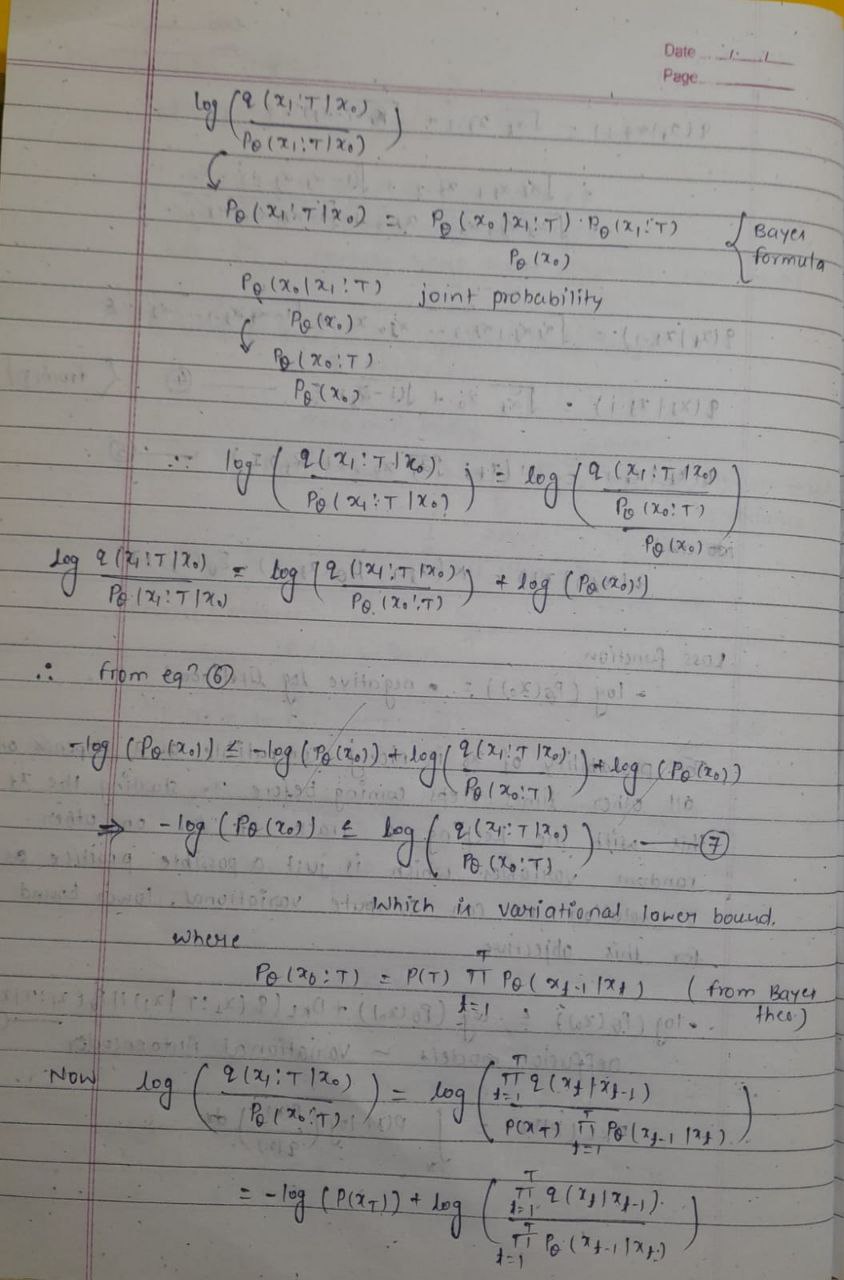 Date ../../..
Page
log ( q(x₁:T|x₀) / Pθ(x₁:T|x₀) )
Pθ(x₁:T|x₀) = Pθ(x₀|x₁:T) · Pθ(x₁:T) / Pθ(x₀) { Bayes formula
Pθ(x₀|x₁:T) / Pθ(x₀) joint probability
Pθ(x₀:T) / Pθ(x₀)
∴ log ( q(x₁:T|x₀) / Pθ(x₁:T|x₀) ) = log ( q(x₁:T|x₀) / ( Pθ(x₀:T) / Pθ(x₀) ) )
log q(x₁:T|x₀) / Pθ(x₁:T|x₀) = log ( q(x₁:T|x₀) / Pθ(x₀:T) ) + log (Pθ(x₀))
∴ from eqⁿ ⑥
-log (Pθ(x₀)) ≤ -log (Pθ(x₀)) + log ( q(x₁:T|x₀) / Pθ(x₀:T) ) + log (Pθ(x₀))
⇒ -log (Pθ(x₀)) ≤ log ( q(x₁:T|x₀) / Pθ(x₀:T) ) — ⑦
which is variational lower bound.
where
Pθ(x₀:T) = P(T) π_{t=1}^{T} Pθ(x_{t-1}|x_t) (from Bayes theo.)
Now log ( q(x₁:T|x₀) / Pθ(x₀:T) ) = log ( π_{t=1}^{T} q(x_t|x_{t-1}) / P(x_T) π_{t=1}^{T} Pθ(x_{t-1}|x_t) )
= -log (P(x_T)) + log ( π_{t=1}^{T} q(x_t|x_{t-1}) / π_{t=1}^{T} Pθ(x_{t-1}|x_t) )